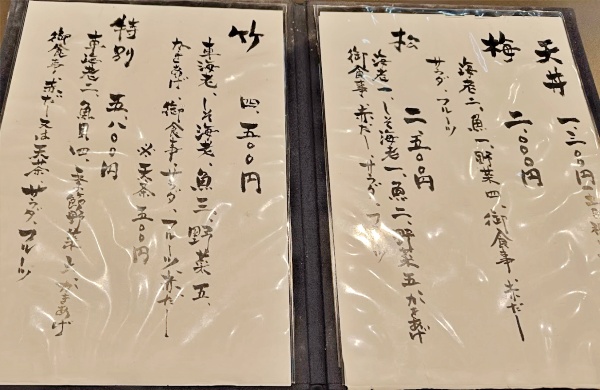 天丼 一、二〇〇円
梅 二、〇〇〇円
海老二、魚一、野菜四、御食事、赤だし
サラダ、フルーツ
松 二、五〇〇円
海老一、しそ海老一、魚二、野菜五、かきあげ
御食事、赤だし、サラダ、フルーツ
竹 四、五〇〇円
車海老、しそ海老、魚三、野菜五、
かきあげ、御食事、サラダ、フルーツ、赤だし
※天茶 五〇〇円
特別 五、八〇〇円
車海老二、魚貝四、季節野菜 かきあげ
御食事、赤だし又は天茶、サラダ、フルーツ